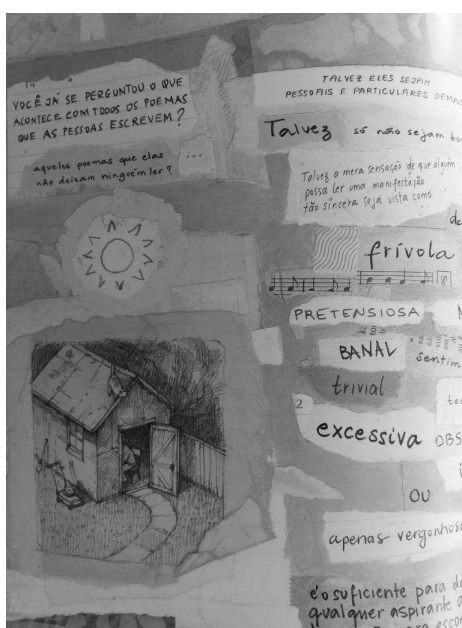 14
VOCÊ JÁ SE PERGUNTOU O QUE
ACONTECE COM TODOS OS POEMAS
QUE AS PESSOAS ESCREVEM?
aqueles poemas que elas
não deixam ninguém ler? ...
TALVEZ ELES SEJAM
PESSOAIS E PARTICULARES DEMAIS
Talvez só não sejam
Talvez a mera sensação de que alguém
possa ler uma manifestação
tão sincera seja vista como
frívola
PRETENSIOSA
BANAL
trivial
2
excessiva
OU
apenas
é o suficiente para
qualquer aspirante